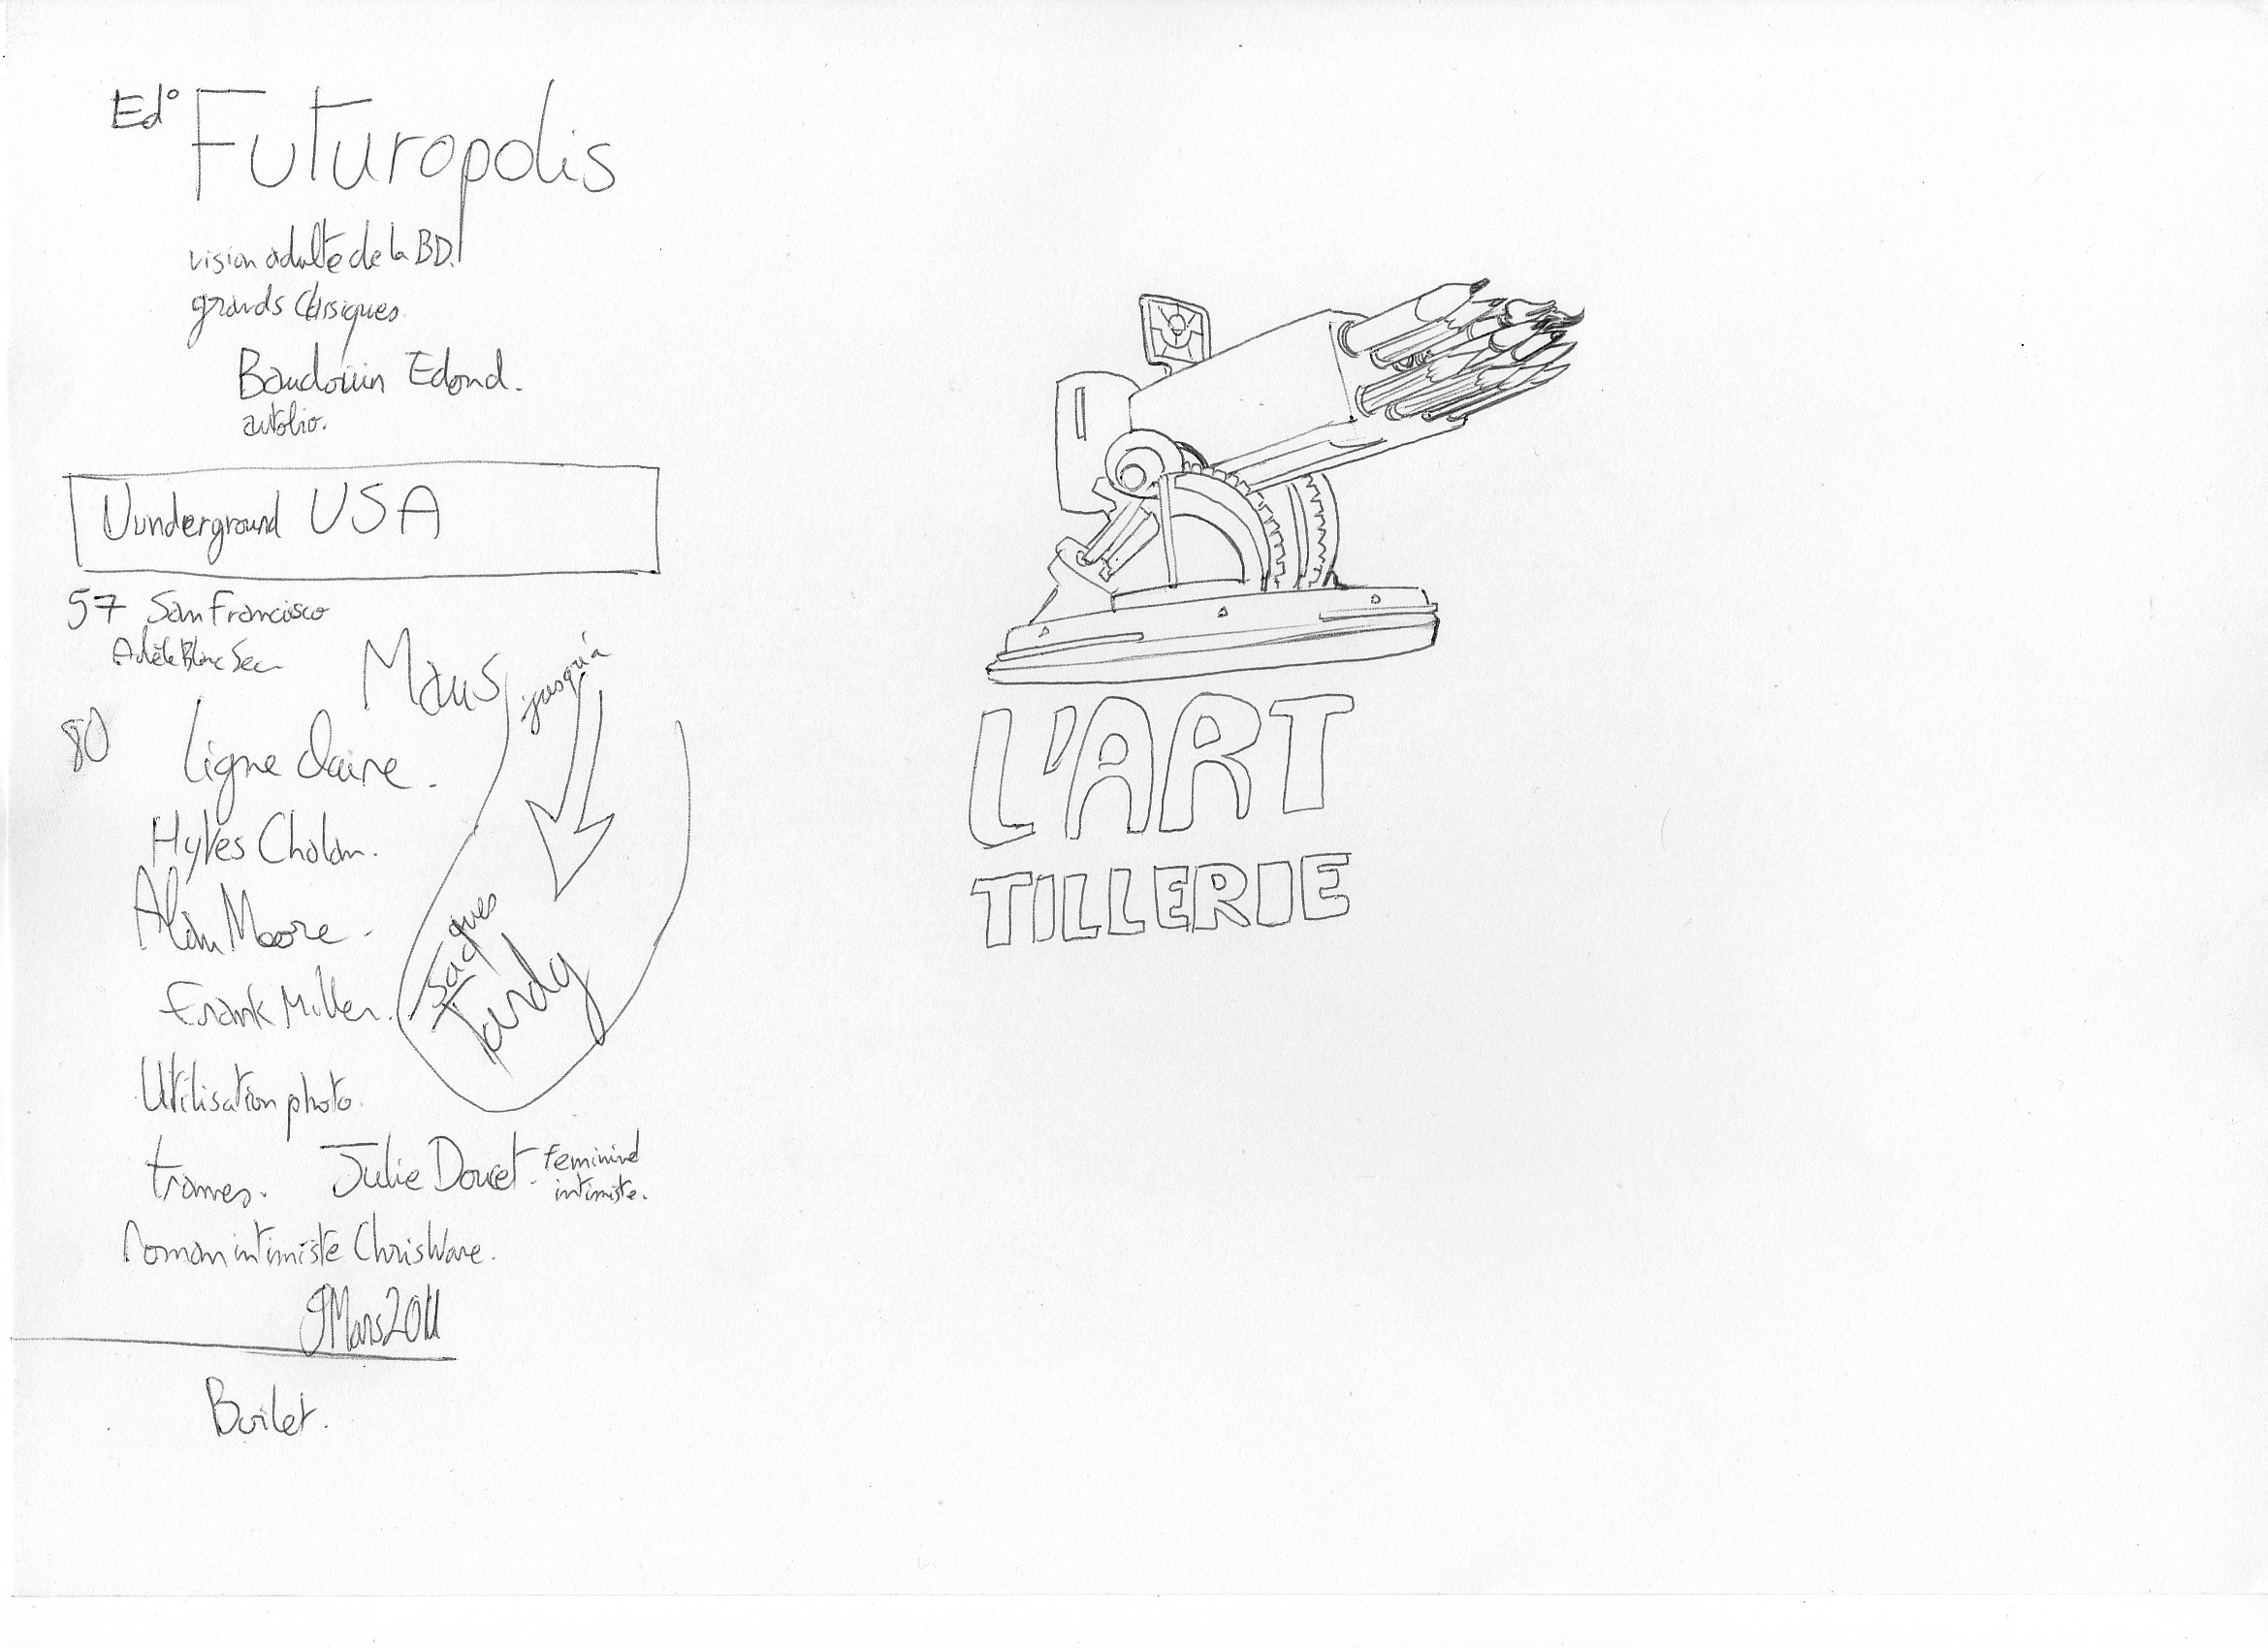 Ed° Futuropolis
vision adulte de la BD.
grands classiques.
Baudouin Edond.
autobio.
Uunderground USA
57 San Francisco
Adèle Blanc Sec
Maus jusqu'à
80 Ligne claire.
Alan Moore.
Frank Miller.
Jaques
Tardy
Utilisation photo.
trames. Julie Doucet. feminine
intimiste.
roman intimiste Chris Ware.
9 Mars 2011
Boilet.
L'ART
TILLERIE